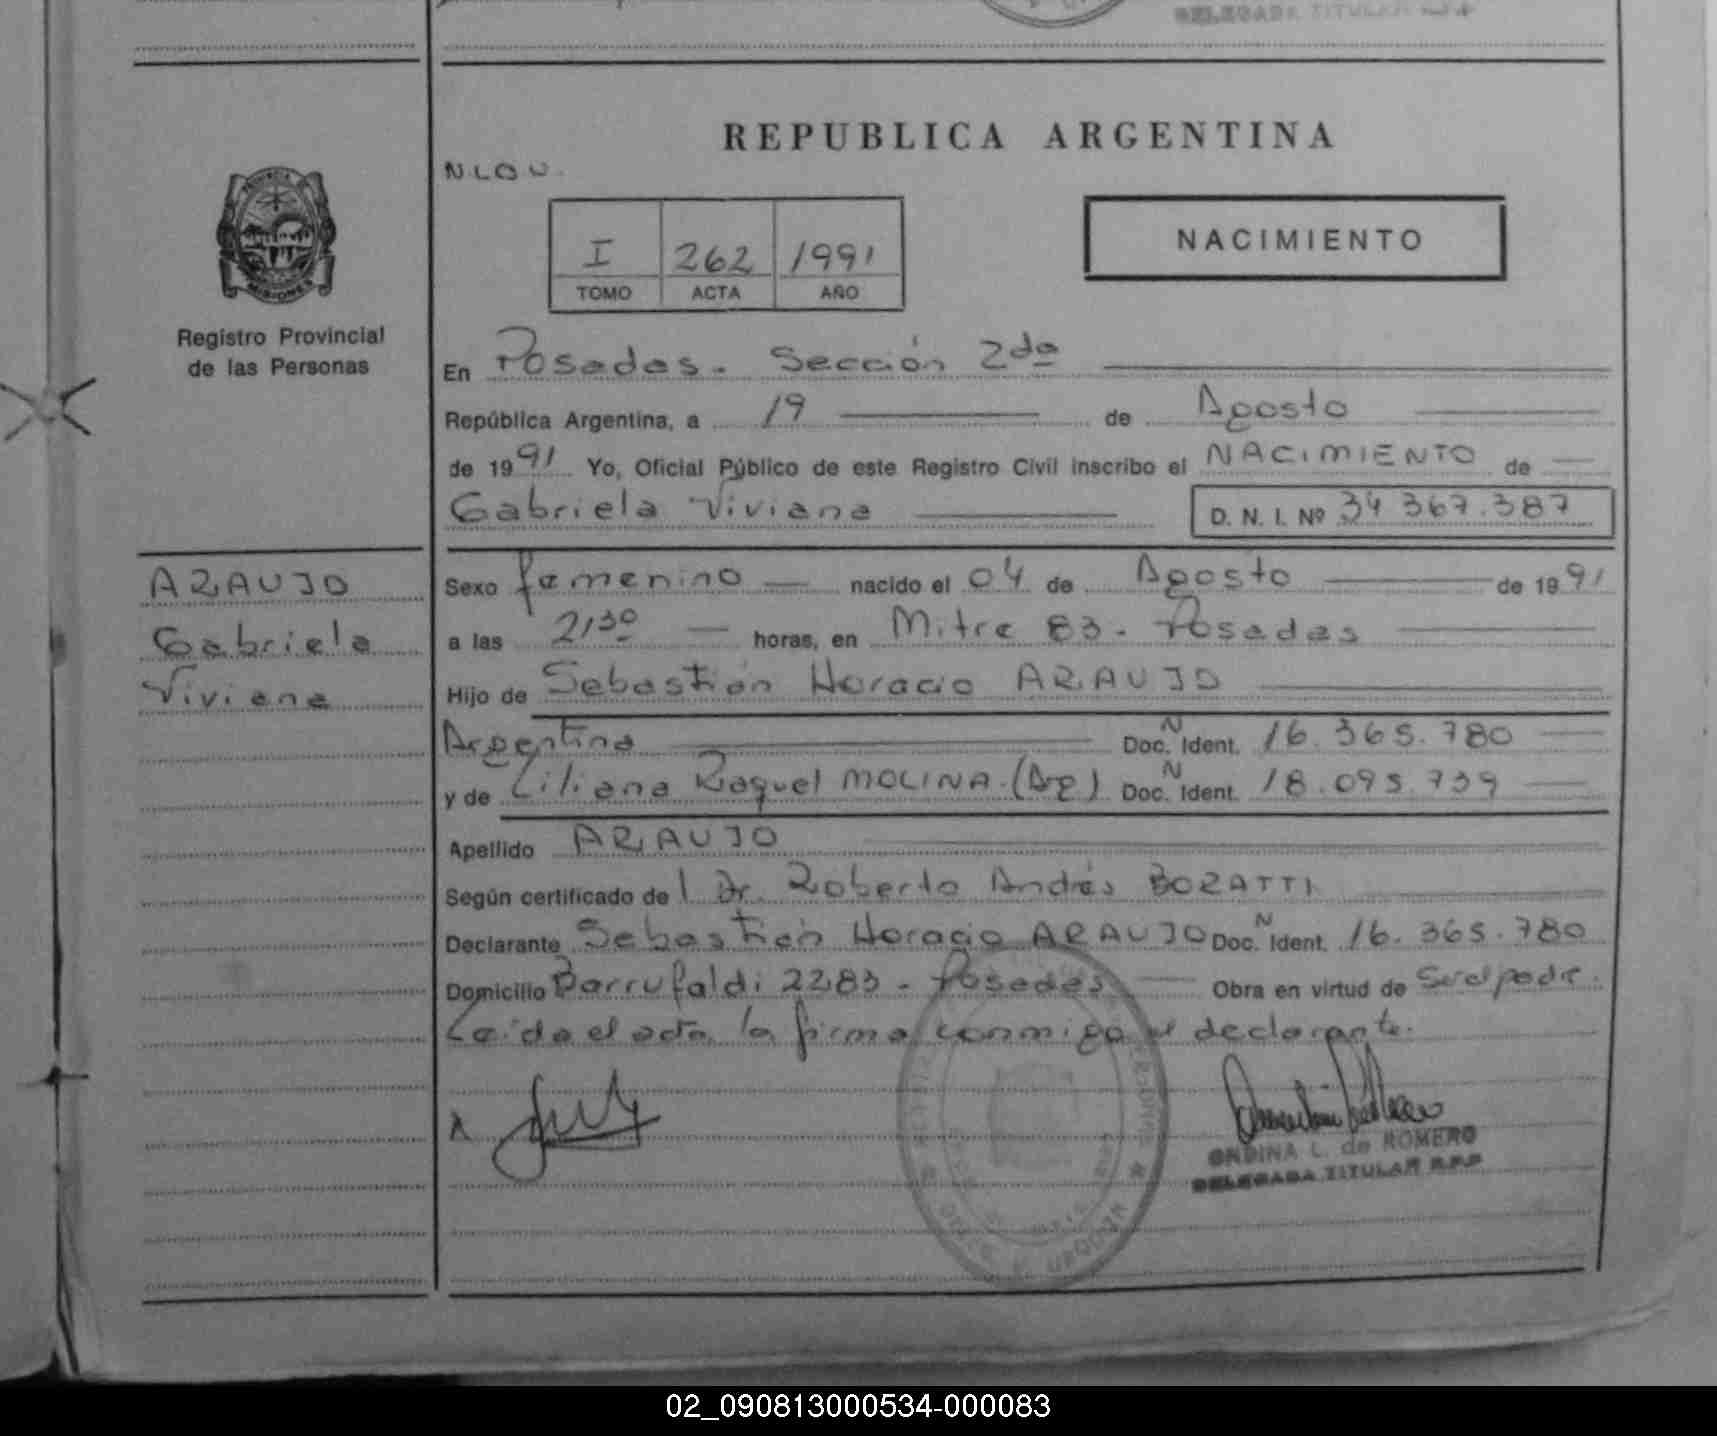 DELEGADA TITULAR
REPUBLICA ARGENTINA
PROVINCIA DE
MISIONES
Registro Provincial
de las Personas
I 262 1991
TOMO ACTA AÑO
NACIMIENTO
En Posadas. Sección 2da
República Argentina, a 19 de Agosto
de 1991 Yo, Oficial Público de este Registro Civil inscribo el NACIMIENTO de
Gabriela Viviana D. N. I. Nº 34 367.387
ARAUJO
Gabriela
Viviana
Sexo femenino nacido el 04 de Agosto de 1991
a las 2130 horas, en Mitre 83 - Posadas
Hijo de Sebastián Horacio ARAUJO
Argentino Doc. N Ident. 16.365.780
y de Liliana Raquel MOLINA. (Arg) Doc. N Ident. 18.095.739
Apellido ARAUJO
Según certificado del Dr. Roberto Andrés BOZATTI
Declarante Sebastián Horacio ARAUJO Doc. N Ident. 16.365.780
Domicilio Barrufaldi 2283 - Posadas Obra en virtud de Su el padre.
Leída el acta, la firma conmigo el declarante.
ONDINA L. de ROMERO
DELEGADA TITULAR R.P.P.
02_090813000534-000083